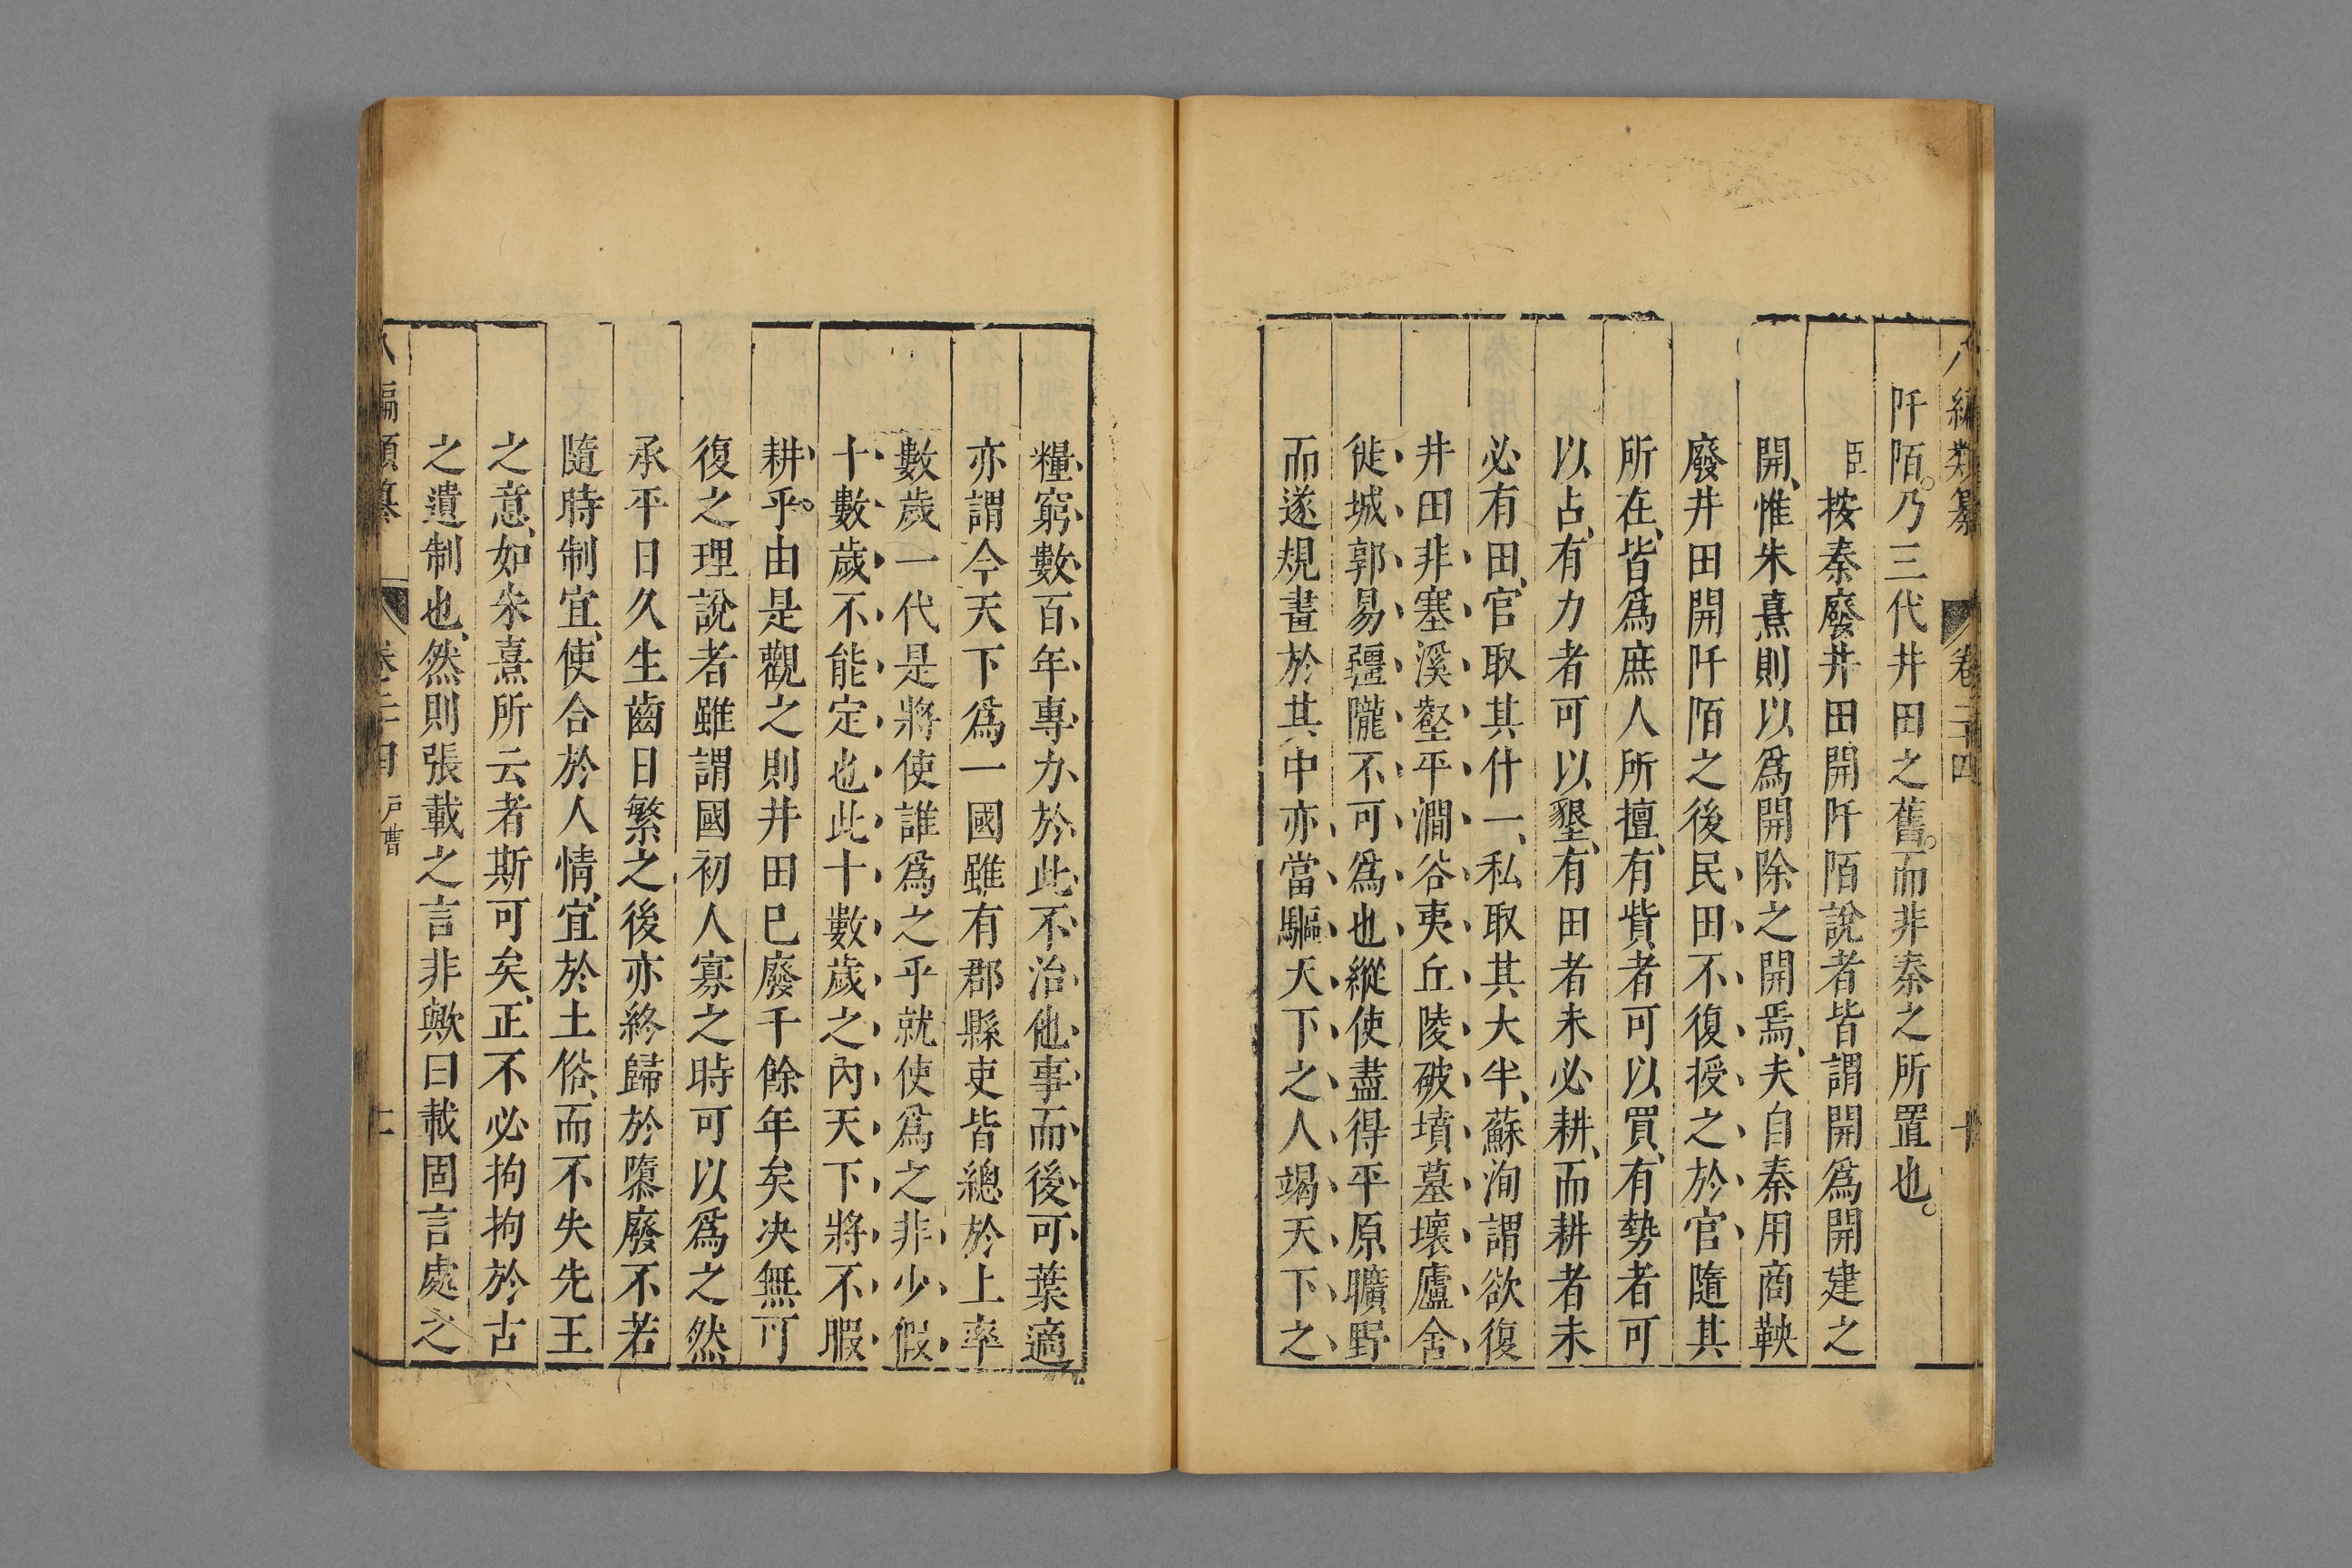 八編類纂 卷二十四 十
阡陌。乃三代井田之舊。而非秦之所置也。
臣按秦廢井田開阡陌說者皆謂開爲開建之
開、惟朱熹則以爲開除之開焉、夫自秦用商鞅
廢井田開阡陌之後民田不復授之於官隨其
所在、皆爲庶人所擅、有貲者可以買、有勢者可
以占、有力者可以墾、有田者未必耕、而耕者未
必有田、官取其什一、私取其大半、蘇洵謂欲復
井田非塞溪壑平澗谷夷丘陵破墳墓壞廬舍
徙城郭易疆隴不可爲也縱使盡得平原曠野
而遂規畫於其中亦當驅天下之人竭天下之
糧窮數百年專力於此不治他事而後可葉適
亦謂今天下爲一國雖有郡縣吏皆總於上率
數歲一代是將使誰爲之乎就使爲之非少假
十數歲不能定也此十數歲之內天下將不暇
耕乎。由是觀之則井田已廢千餘年矣決無可
復之理說者雖謂國初人寡之時可以爲之然
承平日久生齒日繁之後亦終歸於隳廢不若
隨時制宜、使合於人情、宜於土俗、而不失先王
之意、如朱熹所云者斯可矣、正不必拘拘於古
之遺制也、然則張載之言非歟曰載固言處之
八編類纂 卷二十四 戶曹 十一